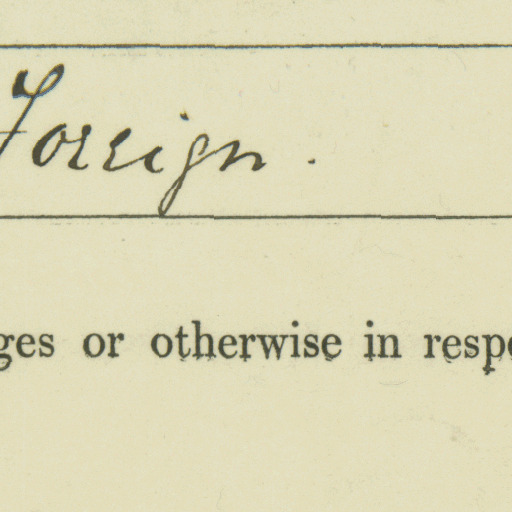 Foreign.
ges or otherwise in respe